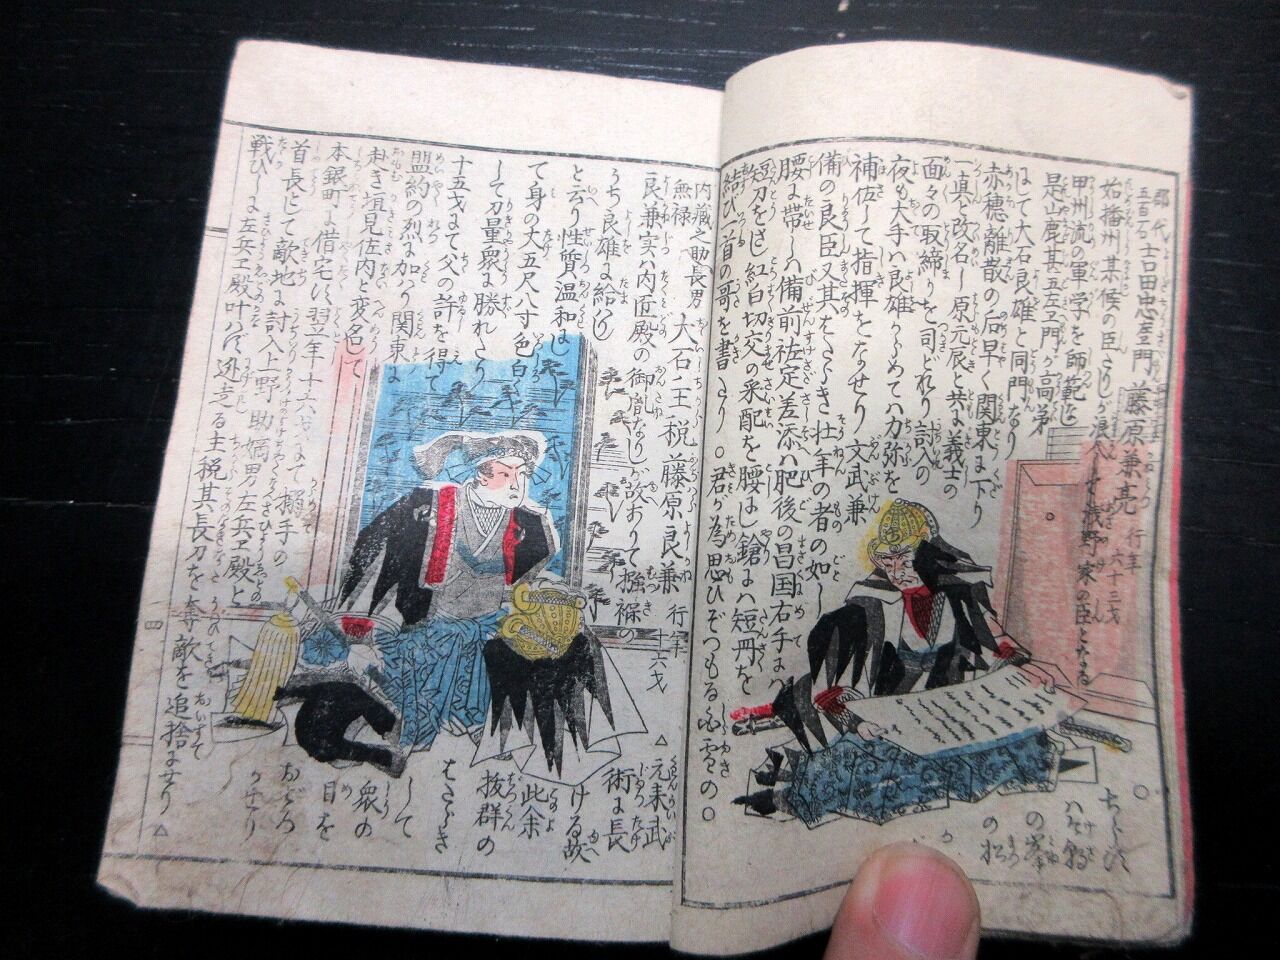 郡代
五百石
吉田忠左エ門
藤原兼亮
行年
六十三才
始播州某候の臣たりしが浪人して浅野家の臣となる
甲州流の軍学を師範し
是山鹿甚五左エ門が高弟
にして大石良雄と同門なり
赤穂離散の后早く関東に下り
一真と改名し原元辰と共に義士の
面々の取締りを司どれり討入の
夜も大手ハ良雄からめてハ力弥を
補佐して指揮をなせり文武兼
備の良臣又其はたらき壮年の者の如し
腰に帯しハ備前祐定差添ハ肥後の昌国右手にハ
短刀をさし紅白切交の采配を腰にし鎗にハ短冊を
結び一首の哥を書たり○君が為思ひぞつもる白雪の○
○
ちらすハ
けさの
の峯の
松
内蔵之助長男
無禄
大石主税
藤原良兼
行年
十六才
良兼実ハ内匠殿の御胤なり故おりて襁褓の
うち良雄に給ハりし
と云り性質温和にし
て身の丈五尺八寸色白く
して力量衆に勝れたり
十五才にて父の許を得て
盟約の列に加ハり関東に
赴き垣見佐内と変名して
本銀町に借宅し翌年十六才にて搦手の
首長として敵地に討入上野助嫡男左兵エ殿と
戦ひしに左兵エ殿叶ハで逃走る主税其長刀を奪敵を追捨なせり△
△元来武
術に長
ける故
此余
抜群の
はたらき
して
衆の
目を
おどろ
かせり
四